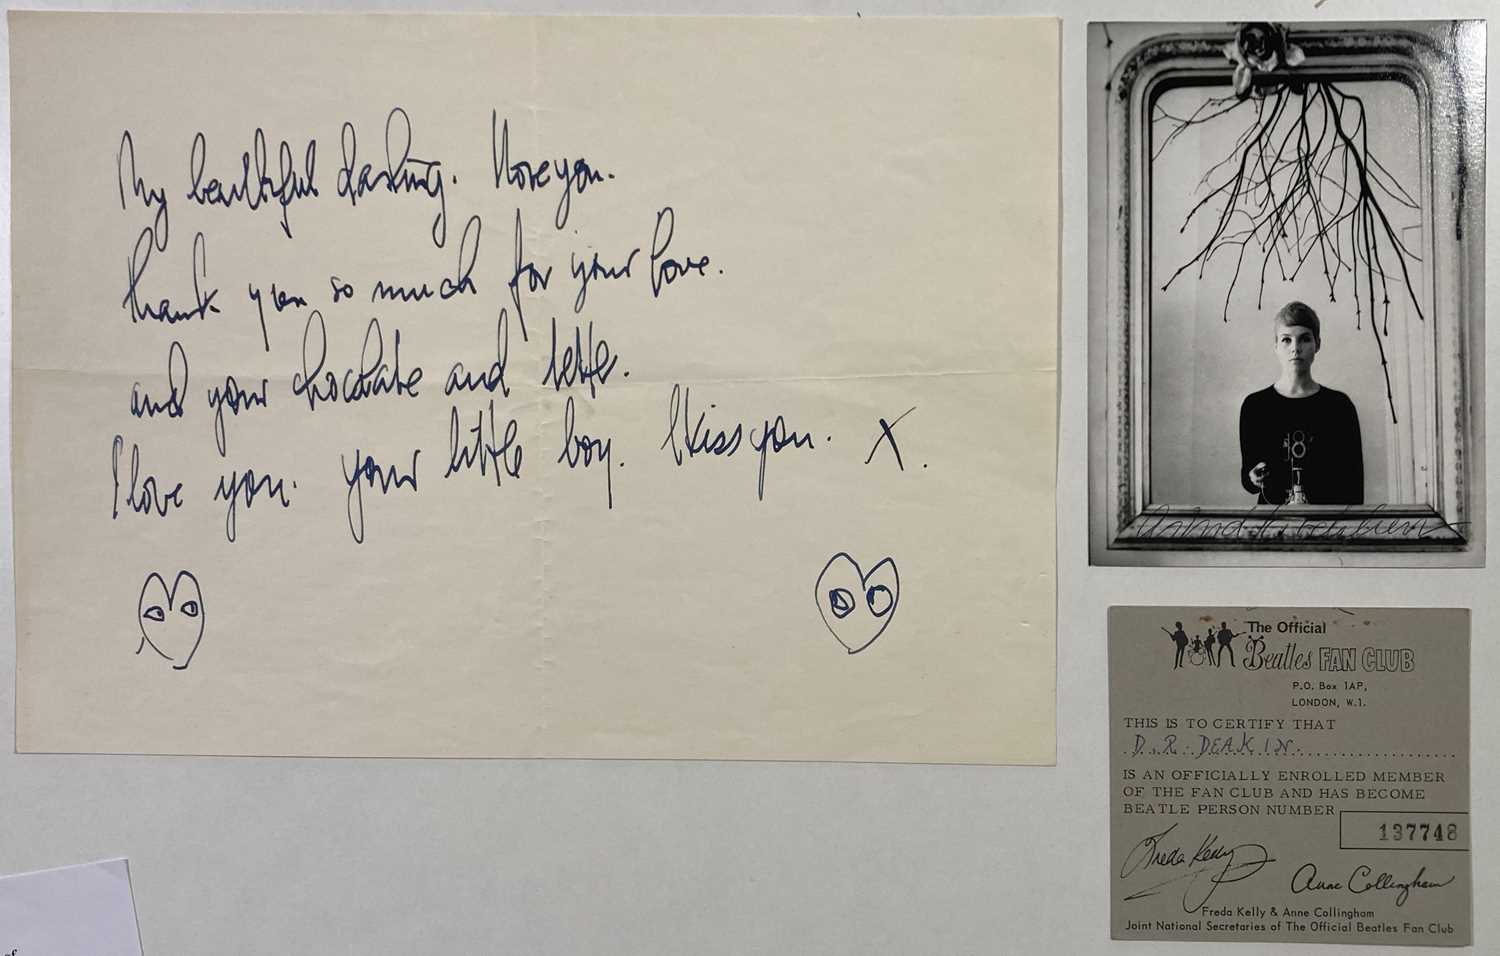 My beautiful darling. I love you.
thank you so much for your love.
and your chocolate and lette.
I love you. your little boy. I kiss you. X.
Astrid Kirchherr
The Official
Beatles FAN CLUB
P.O. Box 1AP,
LONDON, W.1.
THIS IS TO CERTIFY THAT
D. R. DEAKIN
IS AN OFFICIALLY ENROLLED MEMBER
OF THE FAN CLUB AND HAS BECOME
BEATLE PERSON NUMBER
137748
Freda Kelly
Anne Collingham
Freda Kelly & Anne Collingham
Joint National Secretaries of The Official Beatles Fan Club